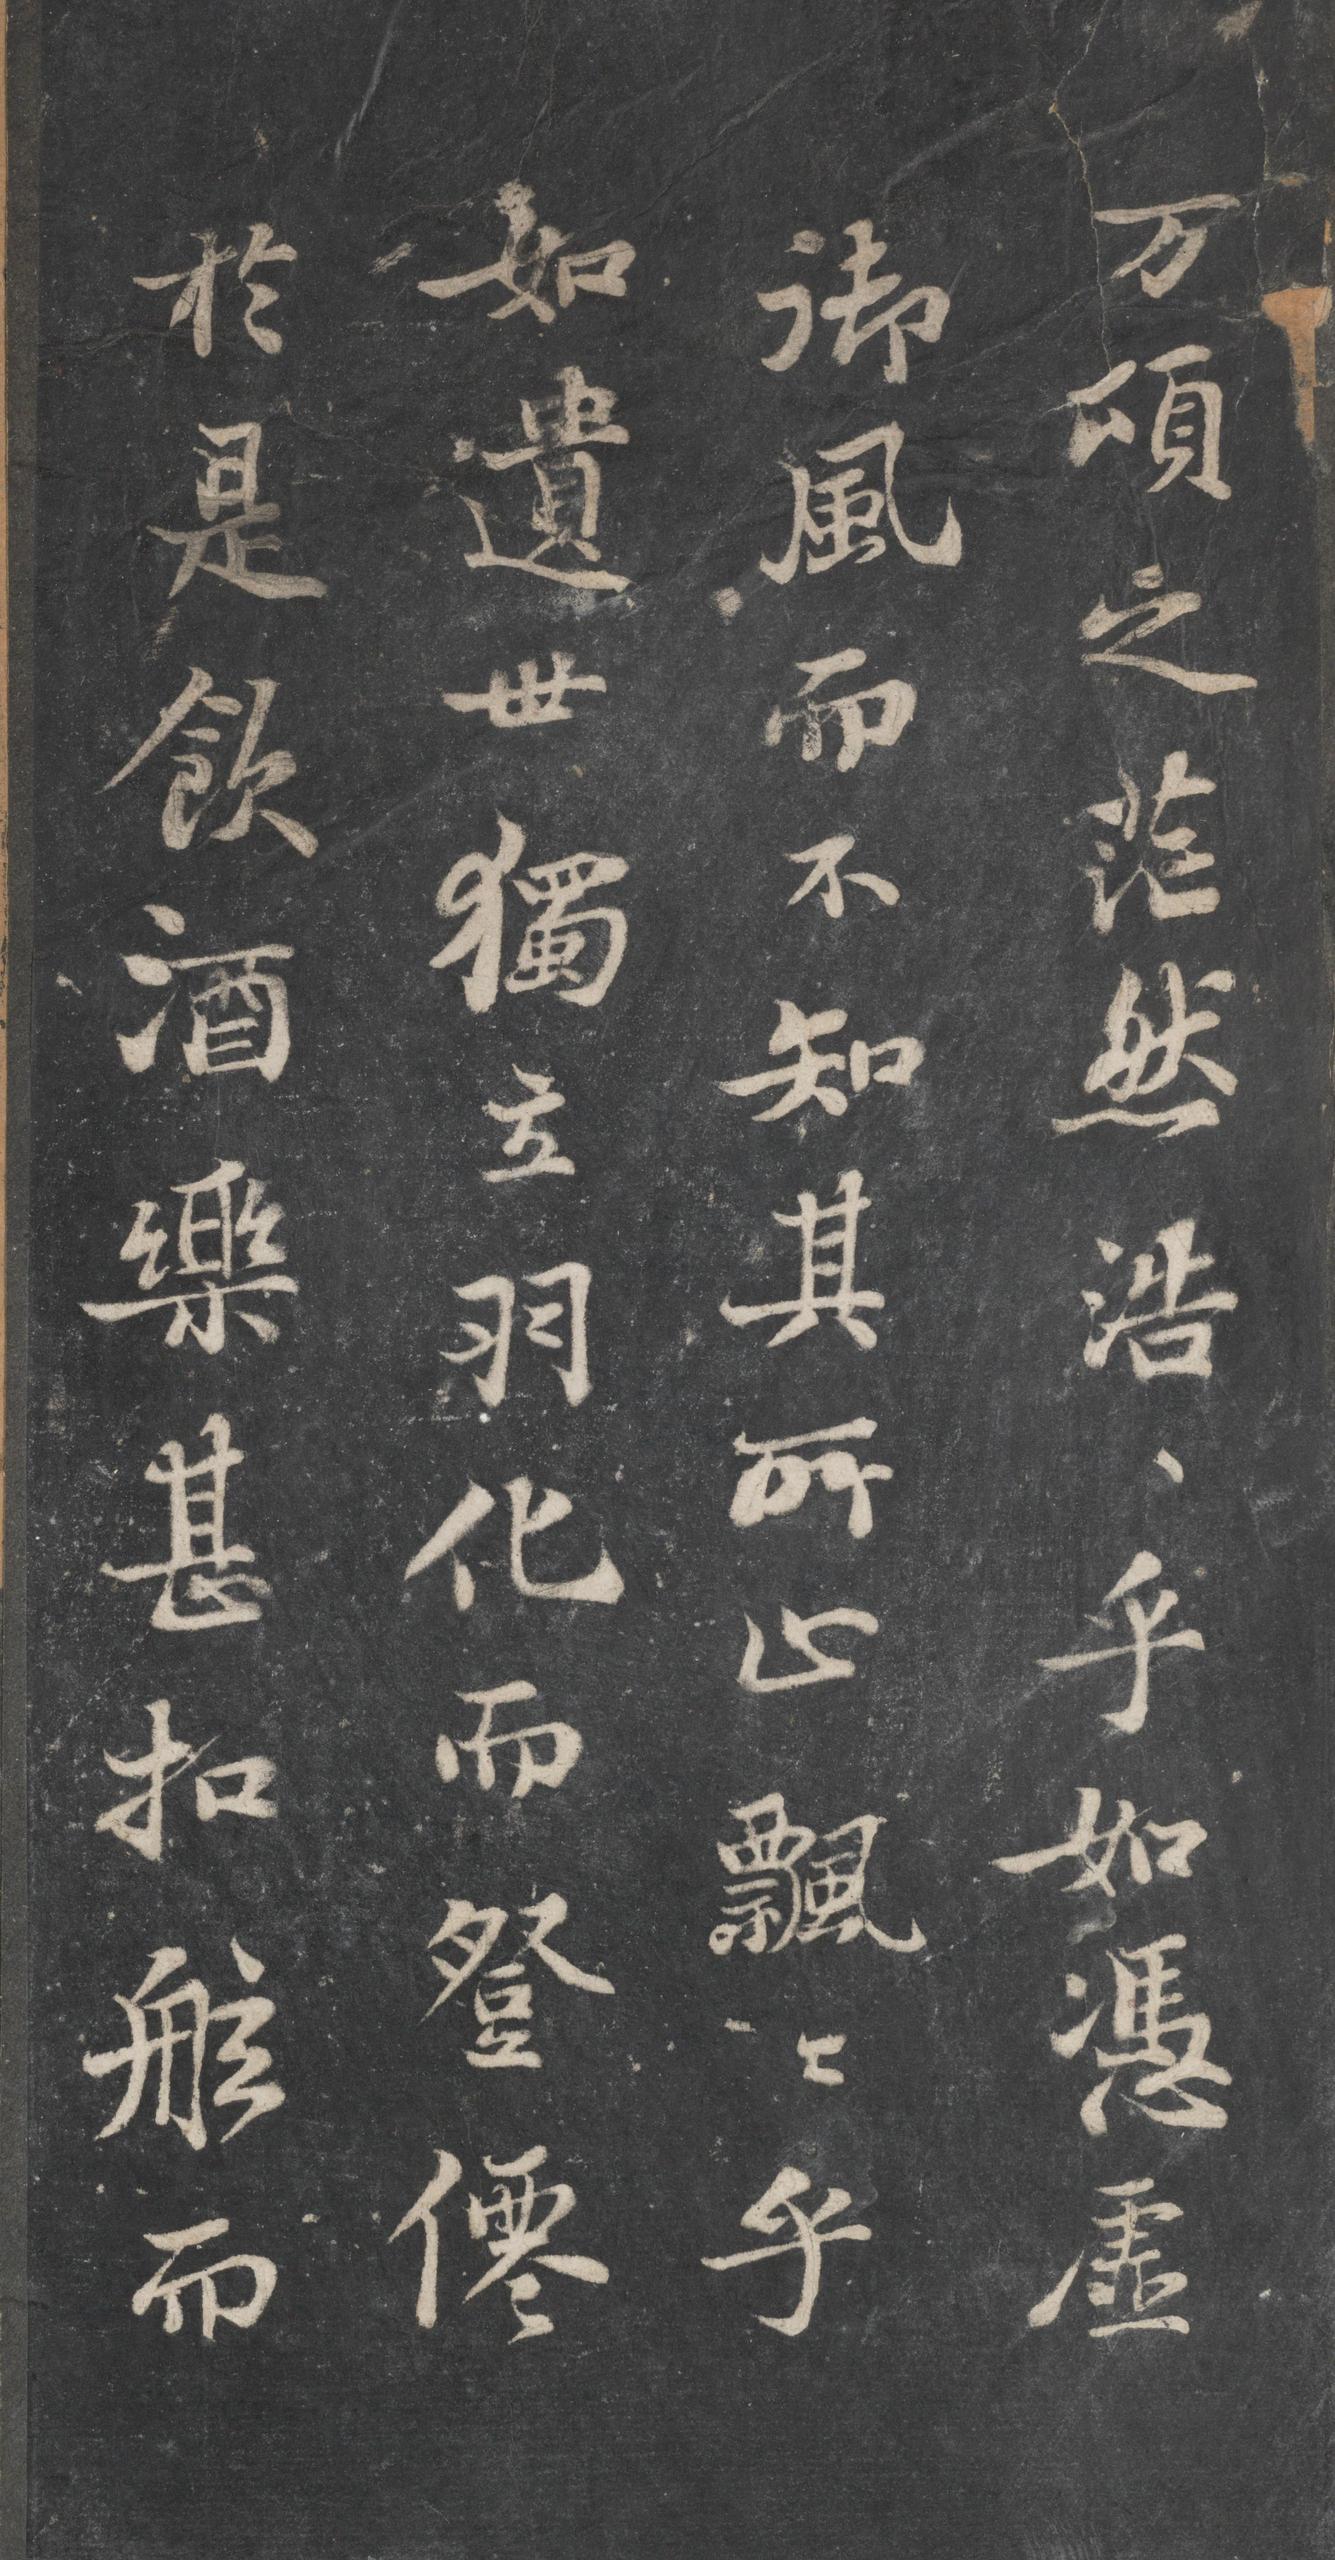 万頃之茫然浩、乎如馮虛
御風而不知其所止飄〻乎
如遺世獨立羽化而登僊
於是飲酒樂甚扣舷而